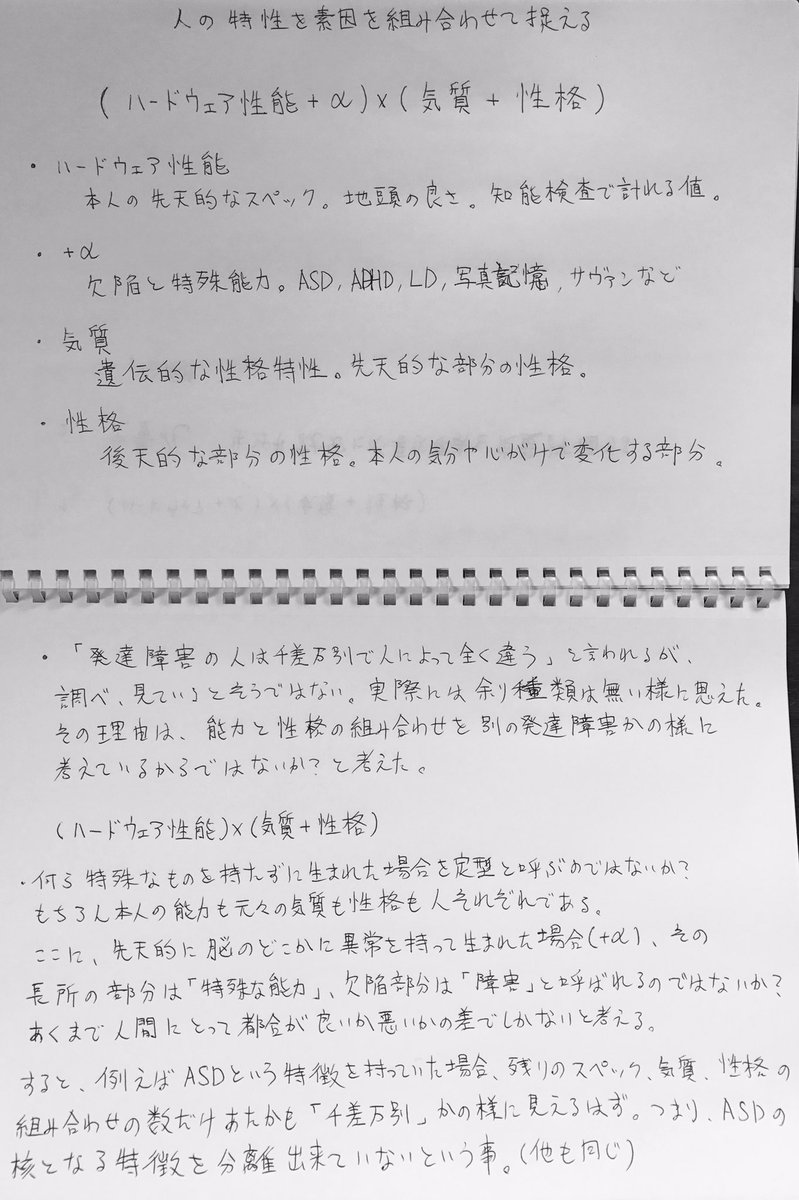 人の特性を素因を組み合わせて捉える
(ハードウェア性能+α)×(気質+性格)
・ハードウェア性能
本人の先天的なスペック。地頭の良さ。知能検査で計れる値。
・+α
欠陥と特殊能力。ASD,ADHD,LD,写真記憶,サヴァンなど
・気質
遺伝的な性格特性。先天的な部分の性格。
・性格
後天的な部分の性格。本人の気分や心がけで変化する部分。
・「発達障害の人は千差万別で人によって全く違う」と言われるが、
調べ、見ているとそうではない。実際には余り種類は無い様に思えた。
その理由は、能力と性格の組み合わせを別の発達障害かの様に
考えているからではないか?と考えた。
(ハードウェア性能)×(気質+性格)
・何ら特殊なものを持たずに生まれた場合を定型と呼ぶのではないか?
もちろん本人の能力も元々の気質も性格も人それぞれである。
ここに、先天的に脳のどこかに異常を持って生まれた場合(+α)、その
長所の部分は「特殊な能力」、欠陥部分は「障害」と呼ばれるのではないか?
あくまで人間にとって都合が良いか悪いかの差でしかないと考える。
すると、例えばASDという特徴を持っていた場合、残りのスペック、気質、性格の
組み合わせの数だけあたかも「千差万別」かの様に見えるはず。つまり、ASDの
核となる特徴を分離出来ていないという事。(他も同じ)